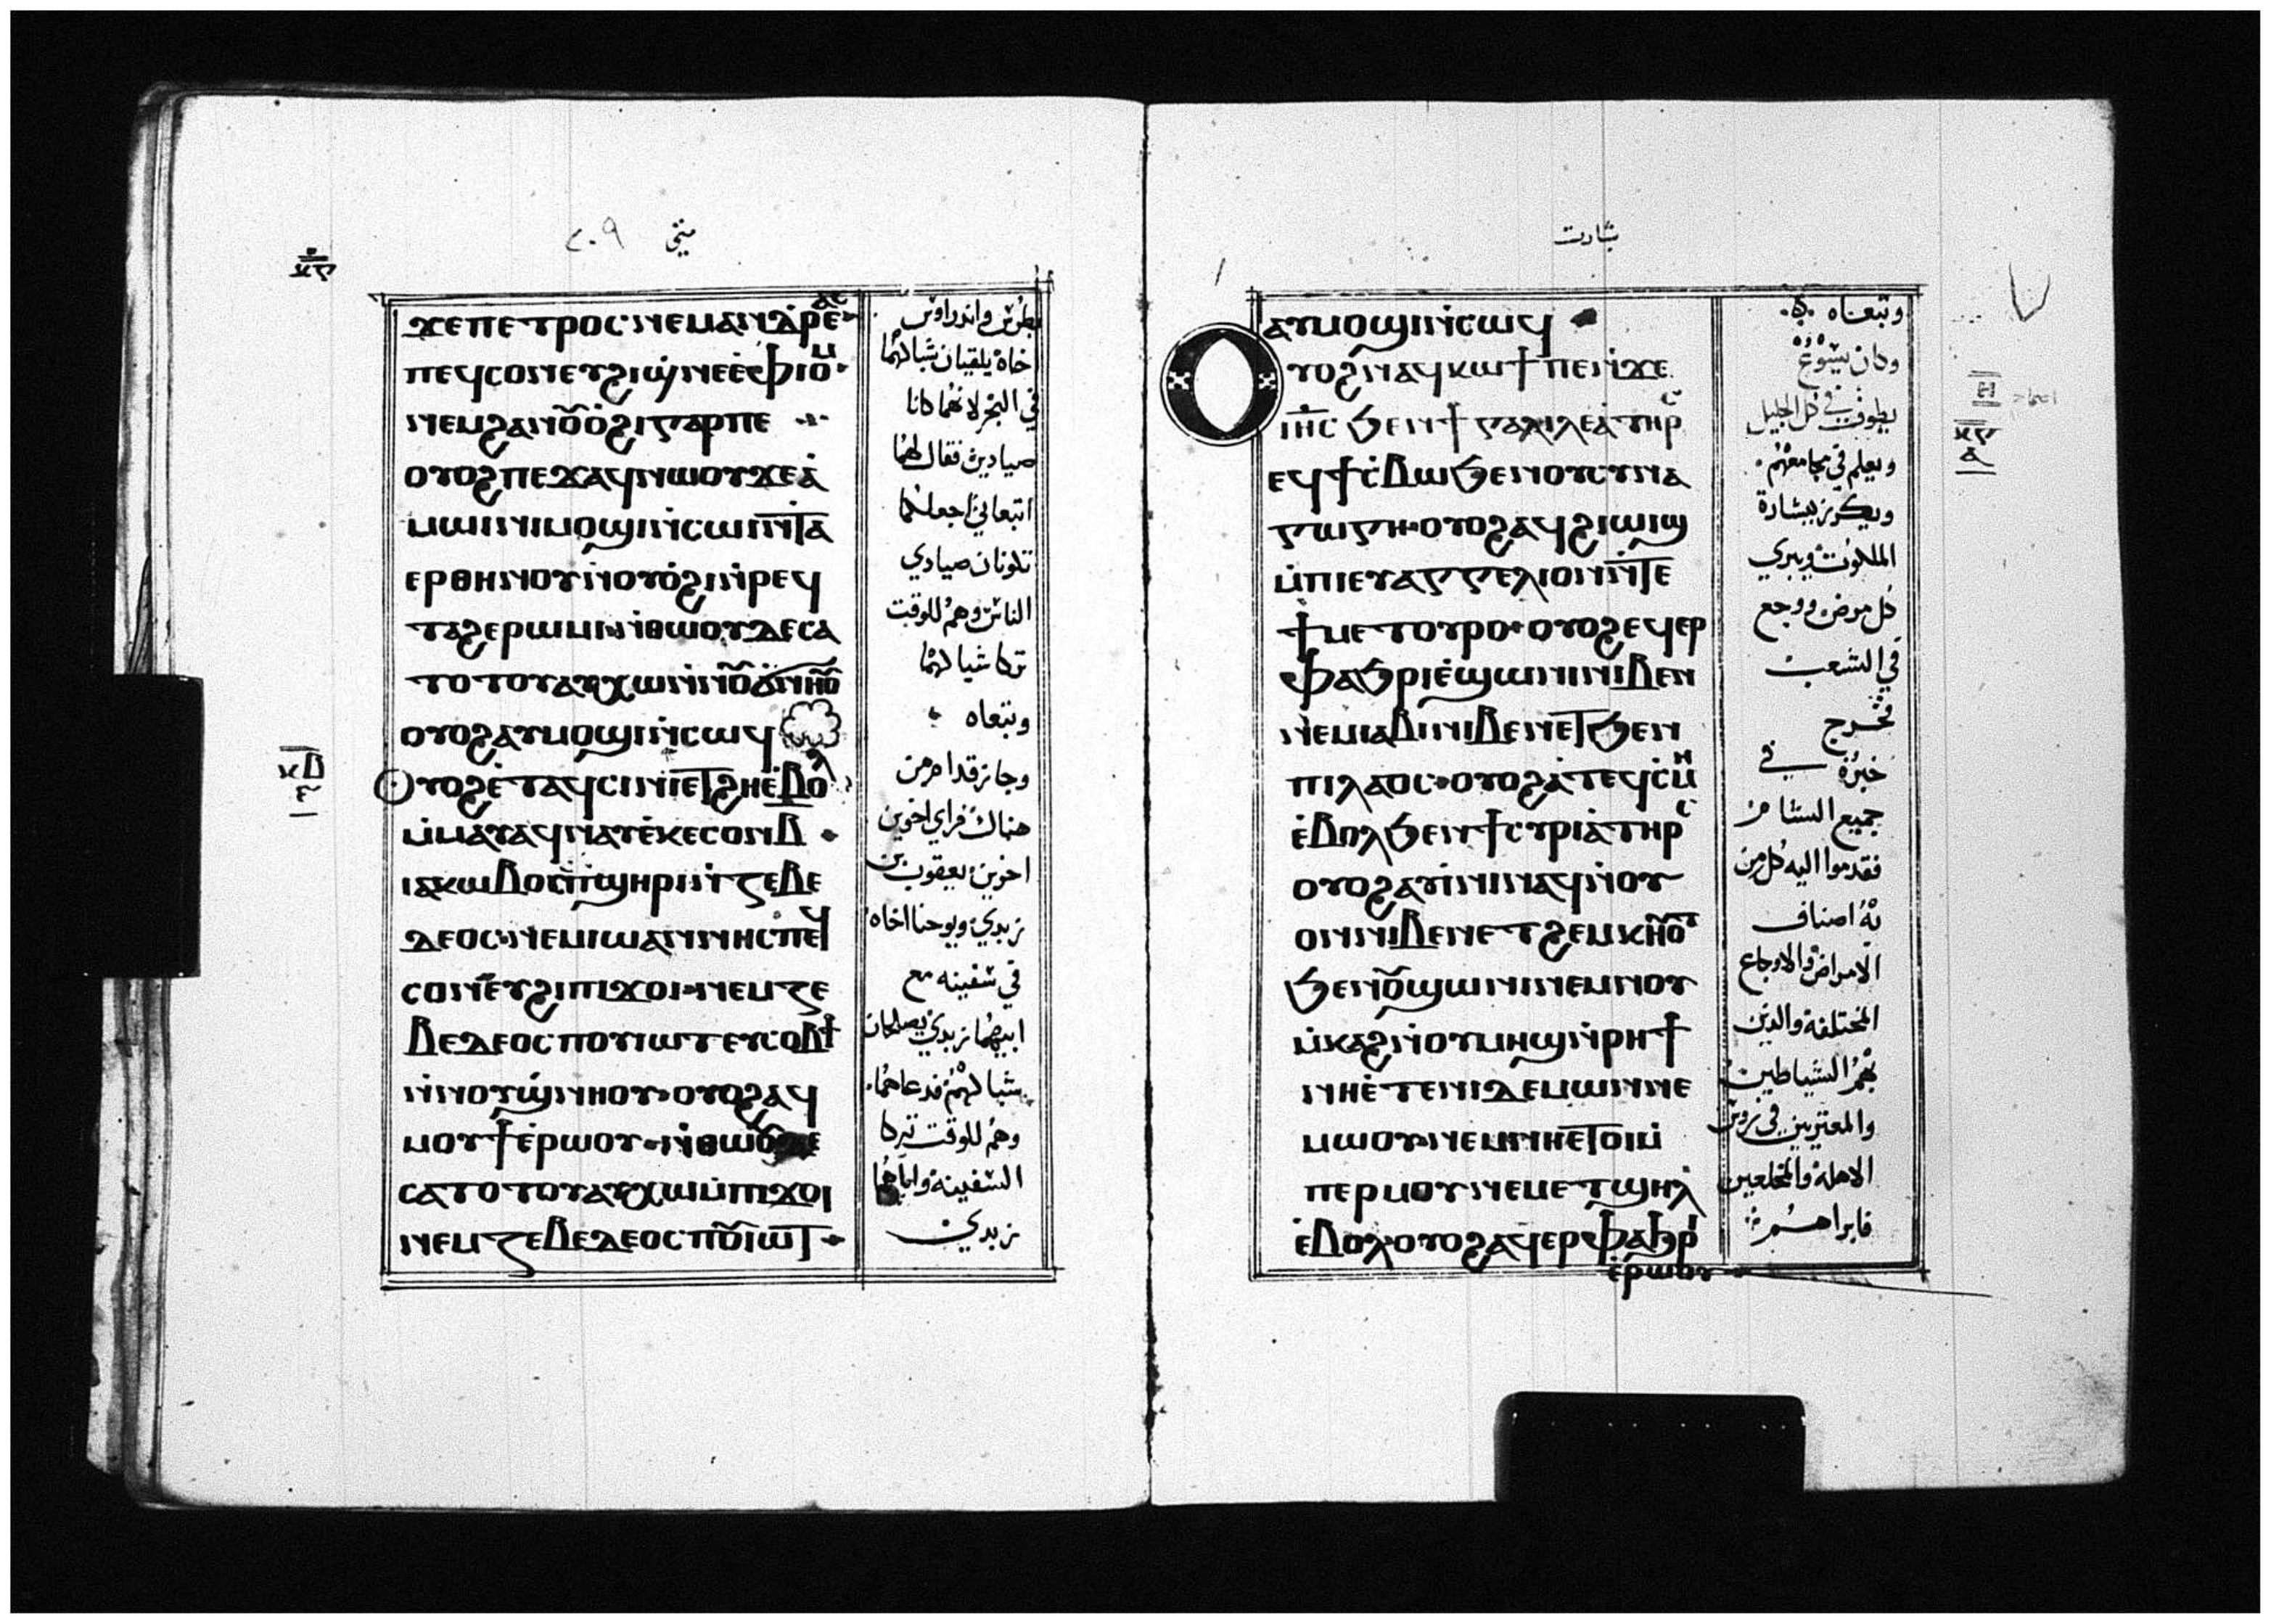 متي ٢٠٩
ϫⲉⲡⲉⲧⲣⲟⲥ ⲛⲉⲙⲁⲛⲇⲣⲉⲁⲥ
ⲡⲉϥⲥⲟⲛ ⲉⲩϩⲓϣⲛⲉ ⲉ̀ⲫⲓⲟⲙ
ⲛⲉϩⲁⲛⲟⲩⲟϩⲓ ⲅⲁⲣⲡⲉ
ⲟⲩⲟϩ ⲡⲉϫⲁϥ ⲛⲱⲟⲩ ϫⲉⲁ̀
ⲙⲱⲓⲛⲓ ⲙⲟϣⲓ ⲛ̀ⲥⲱⲓ ⲛ̀ⲧⲁ
ⲉⲣⲑⲏⲛⲟⲩ ⲛ̀ⲟⲩⲟ̀ϩⲓ ⲛ̀ⲣⲉϥ
ⲧⲁϩⲉⲣⲱⲙⲓ ⲛ̀ⲑⲱⲟⲩ ⲇⲉ ⲥⲁ
ⲧⲟⲧⲟⲩ ⲁⲩⲭⲱ ⲛ̀ⲛⲟⲩϣⲛⲏⲟⲩ
ⲟⲩⲟϩ ⲁⲩⲙⲟϣⲓ ⲛ̀ⲥⲱϥ
ⲟⲩⲟϩ ⲉ̀ⲧⲁϥⲥⲓⲛⲓ ⲉⲧϩⲏ ⲉ̀ⲃⲟⲗ
ⲙ̀ⲙⲁⲩ ⲁϥⲛⲁⲩ ⲉ̀ⲕⲉⲥⲟⲛ ⲃ
ⲓⲁⲕⲱⲃⲟⲥ ⲡϣⲏⲣⲓ ⲛ̀ⲍⲉⲃⲉ
ⲇⲉⲟⲥ ⲛⲉⲙ ⲓⲱⲁⲛⲛⲏⲥ ⲡⲉϥ
ⲥⲟⲛ ⲉⲩϩⲓ ⲡⲓϫⲟⲓ ⲛⲉⲙ ⲍⲉ
ⲃⲉⲇⲉⲟⲥ ⲡⲟⲩⲓⲱⲧ ⲉⲩⲥⲟⲃϯ
ⲛ̀ⲛⲟⲩϣⲛⲏⲟⲩ ⲟⲩⲟϩ ⲁϥ
ⲙⲟⲩϯ ⲉ̀ⲣⲱⲟⲩ ⲛ̀ⲑⲱⲟⲩ ⲇⲉ
ⲥⲁⲧⲟⲧⲟⲩ ⲁⲩⲭⲱ ⲙ̀ⲡⲓϫⲟⲓ
ⲛⲉⲙ ⲍⲉⲃⲉⲇⲉⲟⲥ ⲡⲟⲩⲓⲱⲧ
بطرس واندراوس
اخاه يلقيان شباكهما
في البحر لانهما كانا
صيادين فقال لهما
اتبعاني اجعلكما
تكونان صيادي
الناس وهم للوقت
تركا شباكهما
وتبعاه
وجاز قدام من
هناك فراي اخوين
اخرين يعقوب بن
زبدي ويوحنا اخاه
في سفينه مع
ابيهما زبدي يصلحان
شباكهم فدعاهما
وهم للوقت تركا
السفينه واباهما
زبدي
بشارت
ⲁⲩⲙⲟϣⲓ ⲛ̀ⲥⲱϥ
ⲟⲩⲟϩ ⲛⲁϥⲕⲱϯ ⲡⲉ ⲛ̀ϫⲉ
ⲓⲏⲥ ϧⲉⲛ ϯⲅⲁⲗⲓⲗⲉⲁ̀ ⲧⲏⲣⲥ
ⲉϥϯⲥⲃⲱ ϧⲉⲛ ⲛⲟⲩⲥⲩⲛⲁ
ⲅⲱⲅⲏ ⲟⲩⲟϩ ⲁϥϩⲓⲱⲓϣ
ⲙ̀ⲡⲓⲉⲩⲁⲅⲅⲉⲗⲓⲟⲛ ⲛ̀ⲧⲉ
ϯⲙⲉⲧⲟⲩⲣⲟ ⲟⲩⲟϩ ⲉϥⲉⲣ
ⲫⲁϧⲣⲓ ⲉ̀ϣⲱⲛⲓ ⲛⲓⲃⲉⲛ
ⲛⲉⲙ ⲓⲁⲃⲓ ⲛⲓⲃⲉⲛ ⲉⲧϧⲉⲛ
ⲡⲓⲗⲁⲟⲥ ⲟⲩⲟϩ ⲁ̀ⲧⲉϥⲥⲙⲏ
ⲉ̀ⲃⲟⲗ ϧⲉⲛ ϯⲥⲩⲣⲓⲁ̀ ⲧⲏⲣⲥ
ⲟⲩⲟϩ ⲁⲩⲓ̀ⲛⲓ ⲛⲁϥ ⲛ̀ⲟⲩ
ⲟⲛ ⲛⲓⲃⲉⲛ ⲉⲧϩⲉⲙⲕⲏⲟⲩⲧ
ϧⲉⲛ ⲟⲩϣⲱⲛⲓ ⲛⲉⲙ ⲛⲟⲩ
ⲙ̀ⲕⲁϩ ⲛ̀ⲟⲩⲙⲏϣ ⲛ̀ⲣⲏϯ
ⲛⲏ ⲉ̀ⲧⲉ ⲛⲓⲇⲉⲙⲱⲛ ⲛⲉ
ⲙⲱⲟⲩ ⲛⲉⲙ ⲛⲏ ⲉⲧⲟⲓ ⲙ̀
ⲡⲉⲣⲙⲟⲩ ⲛⲉⲙ ⲉⲧϣⲏⲗ
ⲉ̀ⲃⲟⲗ ⲟⲩⲟϩ ⲁϥⲉⲣⲫⲁϧⲣⲓ
ⲉ̀ⲣⲱⲟⲩ
وتبعاه
وكان يسوع
يطوف في كل الجليل
ويعلم في مجامعهم
ويكرز ببشارة
الملكوت ويبري
كل مرض ووجع
في الشعب
فخرج
خبره في
جميع الشام
فقدموا اليه كل من
به اصناف
الامراض والاوجاع
المختلفة والذين
بهم الشياطين
والمعترين في روس
الاهلة والمخلعين
فابراهم